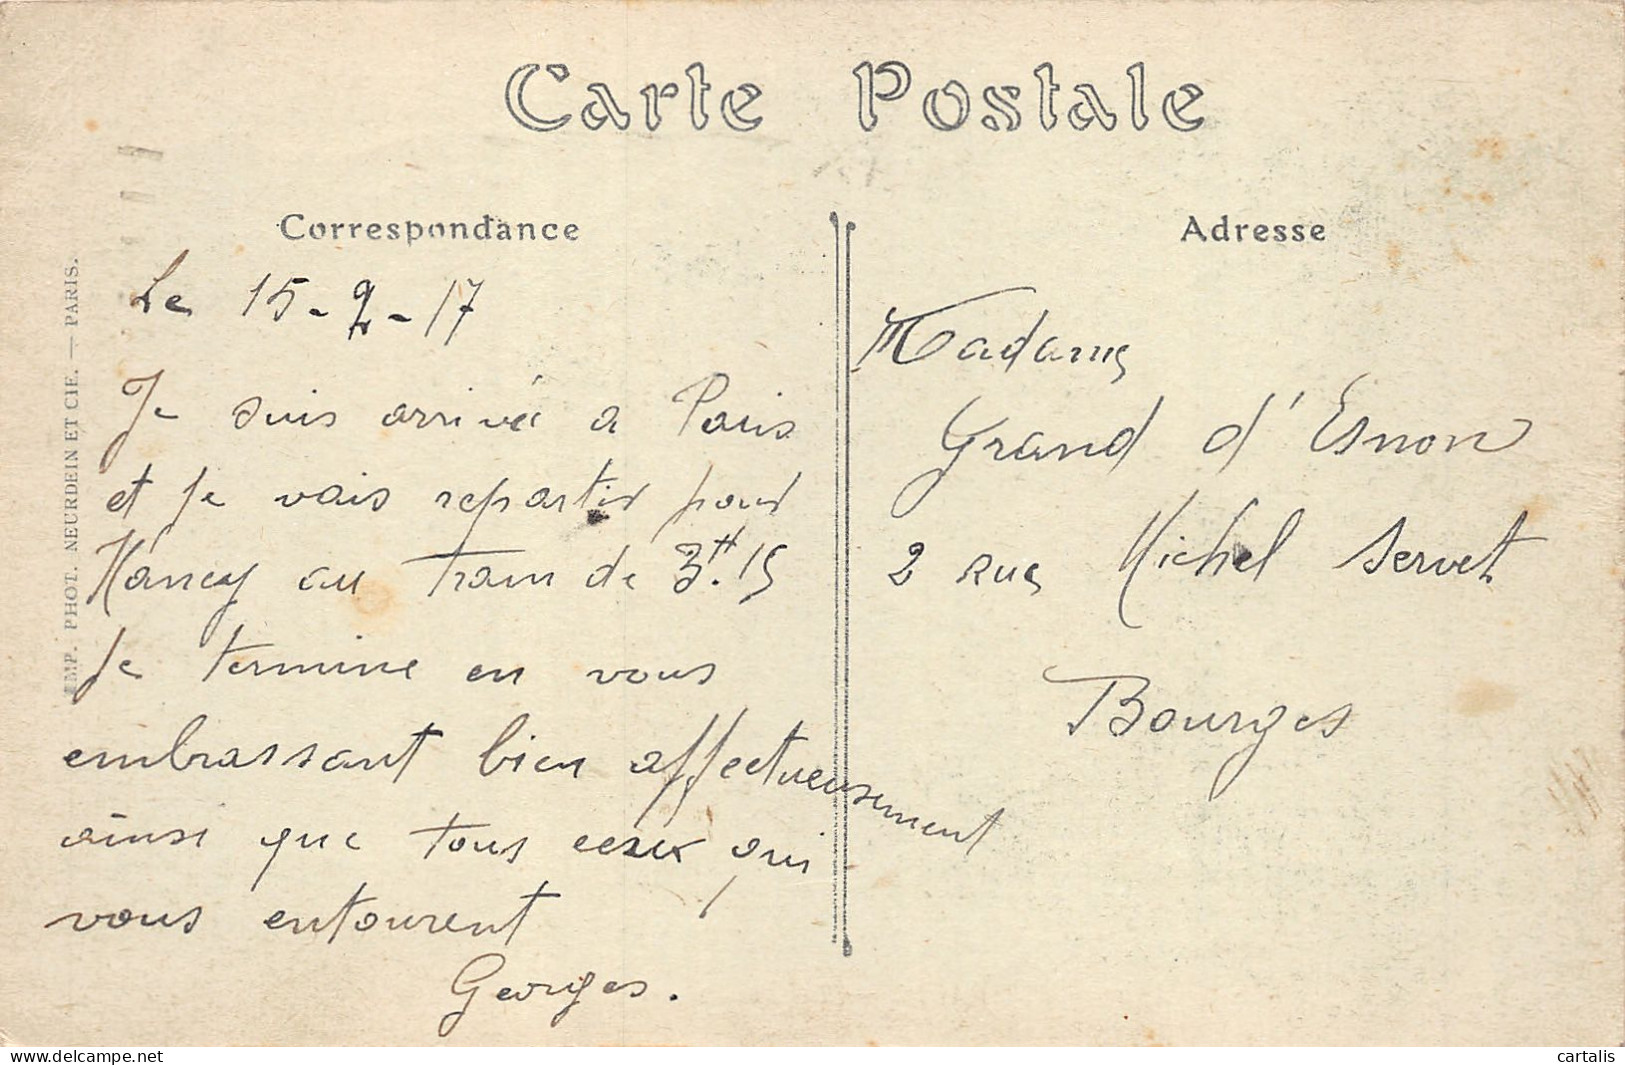 Carte Postale
Correspondance
Le 15-2-17
Je suis arrivé a Paris
et je vais repartir pour
Nancy au train de 3H.15
Je termine en vous
embrassant bien affectueusement
ainsi que tous ceux qui
vous entourent
Georges.
Adresse
Madame
Grand d'Esnon
2 rue Michel Servet
Bourges
IMP. PHOT. NEURDEIN ET CIE. — PARIS.
www.delcampe.net
cartalis